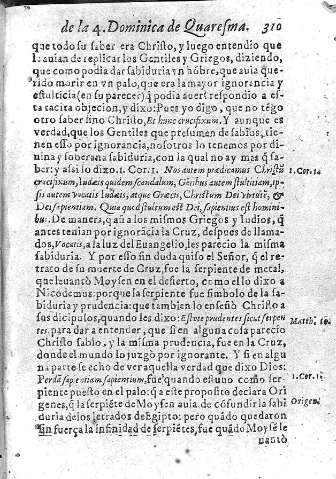 de la 4. Dominica de Quaresma. 310
que todo su saber era Christo, y luego entendio que
le auian de replicar los Gentiles y Griegos, diziendo,
que como podia dar sabiduria vn hõbre, que auia que-
rido morir en vn palo, que era la mayor ignorancia y
estulticia (en su parecer) q̃ podia auer: respondio a es-
ta tacita objecion, y dixo: Pues yo digo, que no tẽgo
otro saber sino Christo, Et hunc crucifixum. Y aunque es
verdad, que los Gentiles que presumen de sabios, tie-
nen esso por ignorancia, nosotros lo tenemos por di-
uina y soberana sabiduria, con la qual no ay mas q̃ sa-
ber: y assi lo dixo. 1. Cor. 1. Nos autem prædicamus Christũ
1. Cor. 14
crucifixum, Iudæis quidem scandalum, Gẽtibus autem stultitiam, ip-
sis autem vocatis Iudæis, atque Græcis, Christum Dei virtutẽ, &
Dei sapientiam. Quia quod stultum est Dei, sapientius est homini-
bus. De manera, q̃ a los mismos Griegos y Iudios, q̃
antes tenian por ignorãcia la Cruz, despues de llama-
dos, Vocatis, a la luz del Euangelio, les parecio la misma
sabiduria. Y por esso sin duda quiso el Señor, q̃ el re-
trato de su muerte de Cruz, fue la serpiente de metal,
que leuantò Moysen en el desierto, como ello dixo a
Nicodemus: porque la serpiente fue simbolo de la sa-
biduria y prudencia: que tambien lo enseñò Christo a
sus dicipulos, quando les dixo: estote prudentes sicut serpen
Matth. 10.
tes. para dar a entender, que si en alguna cosa parecio
Christo sabio, y la misma prudencia, fue en la Cruz,
donde el mundo lo juzgò por ignorante. Y si en algu
na parte se echo de ver aquella verdad que dixo Dios:
1. Cor. 1.
Perdã sapientiam sapientium, fue quando estuuo como ser-
piente puesto en el palo: q̃ a este proposito declara Ori
Origen.
genes, q̃ la serpiẽte de Moysen auia de cõfundir la sabi
duria de los letrados de Egipto: pero quãdo quedaron
sin fuerça la infinidad de serpiẽtes, fue quãdo Moyse le
uantò